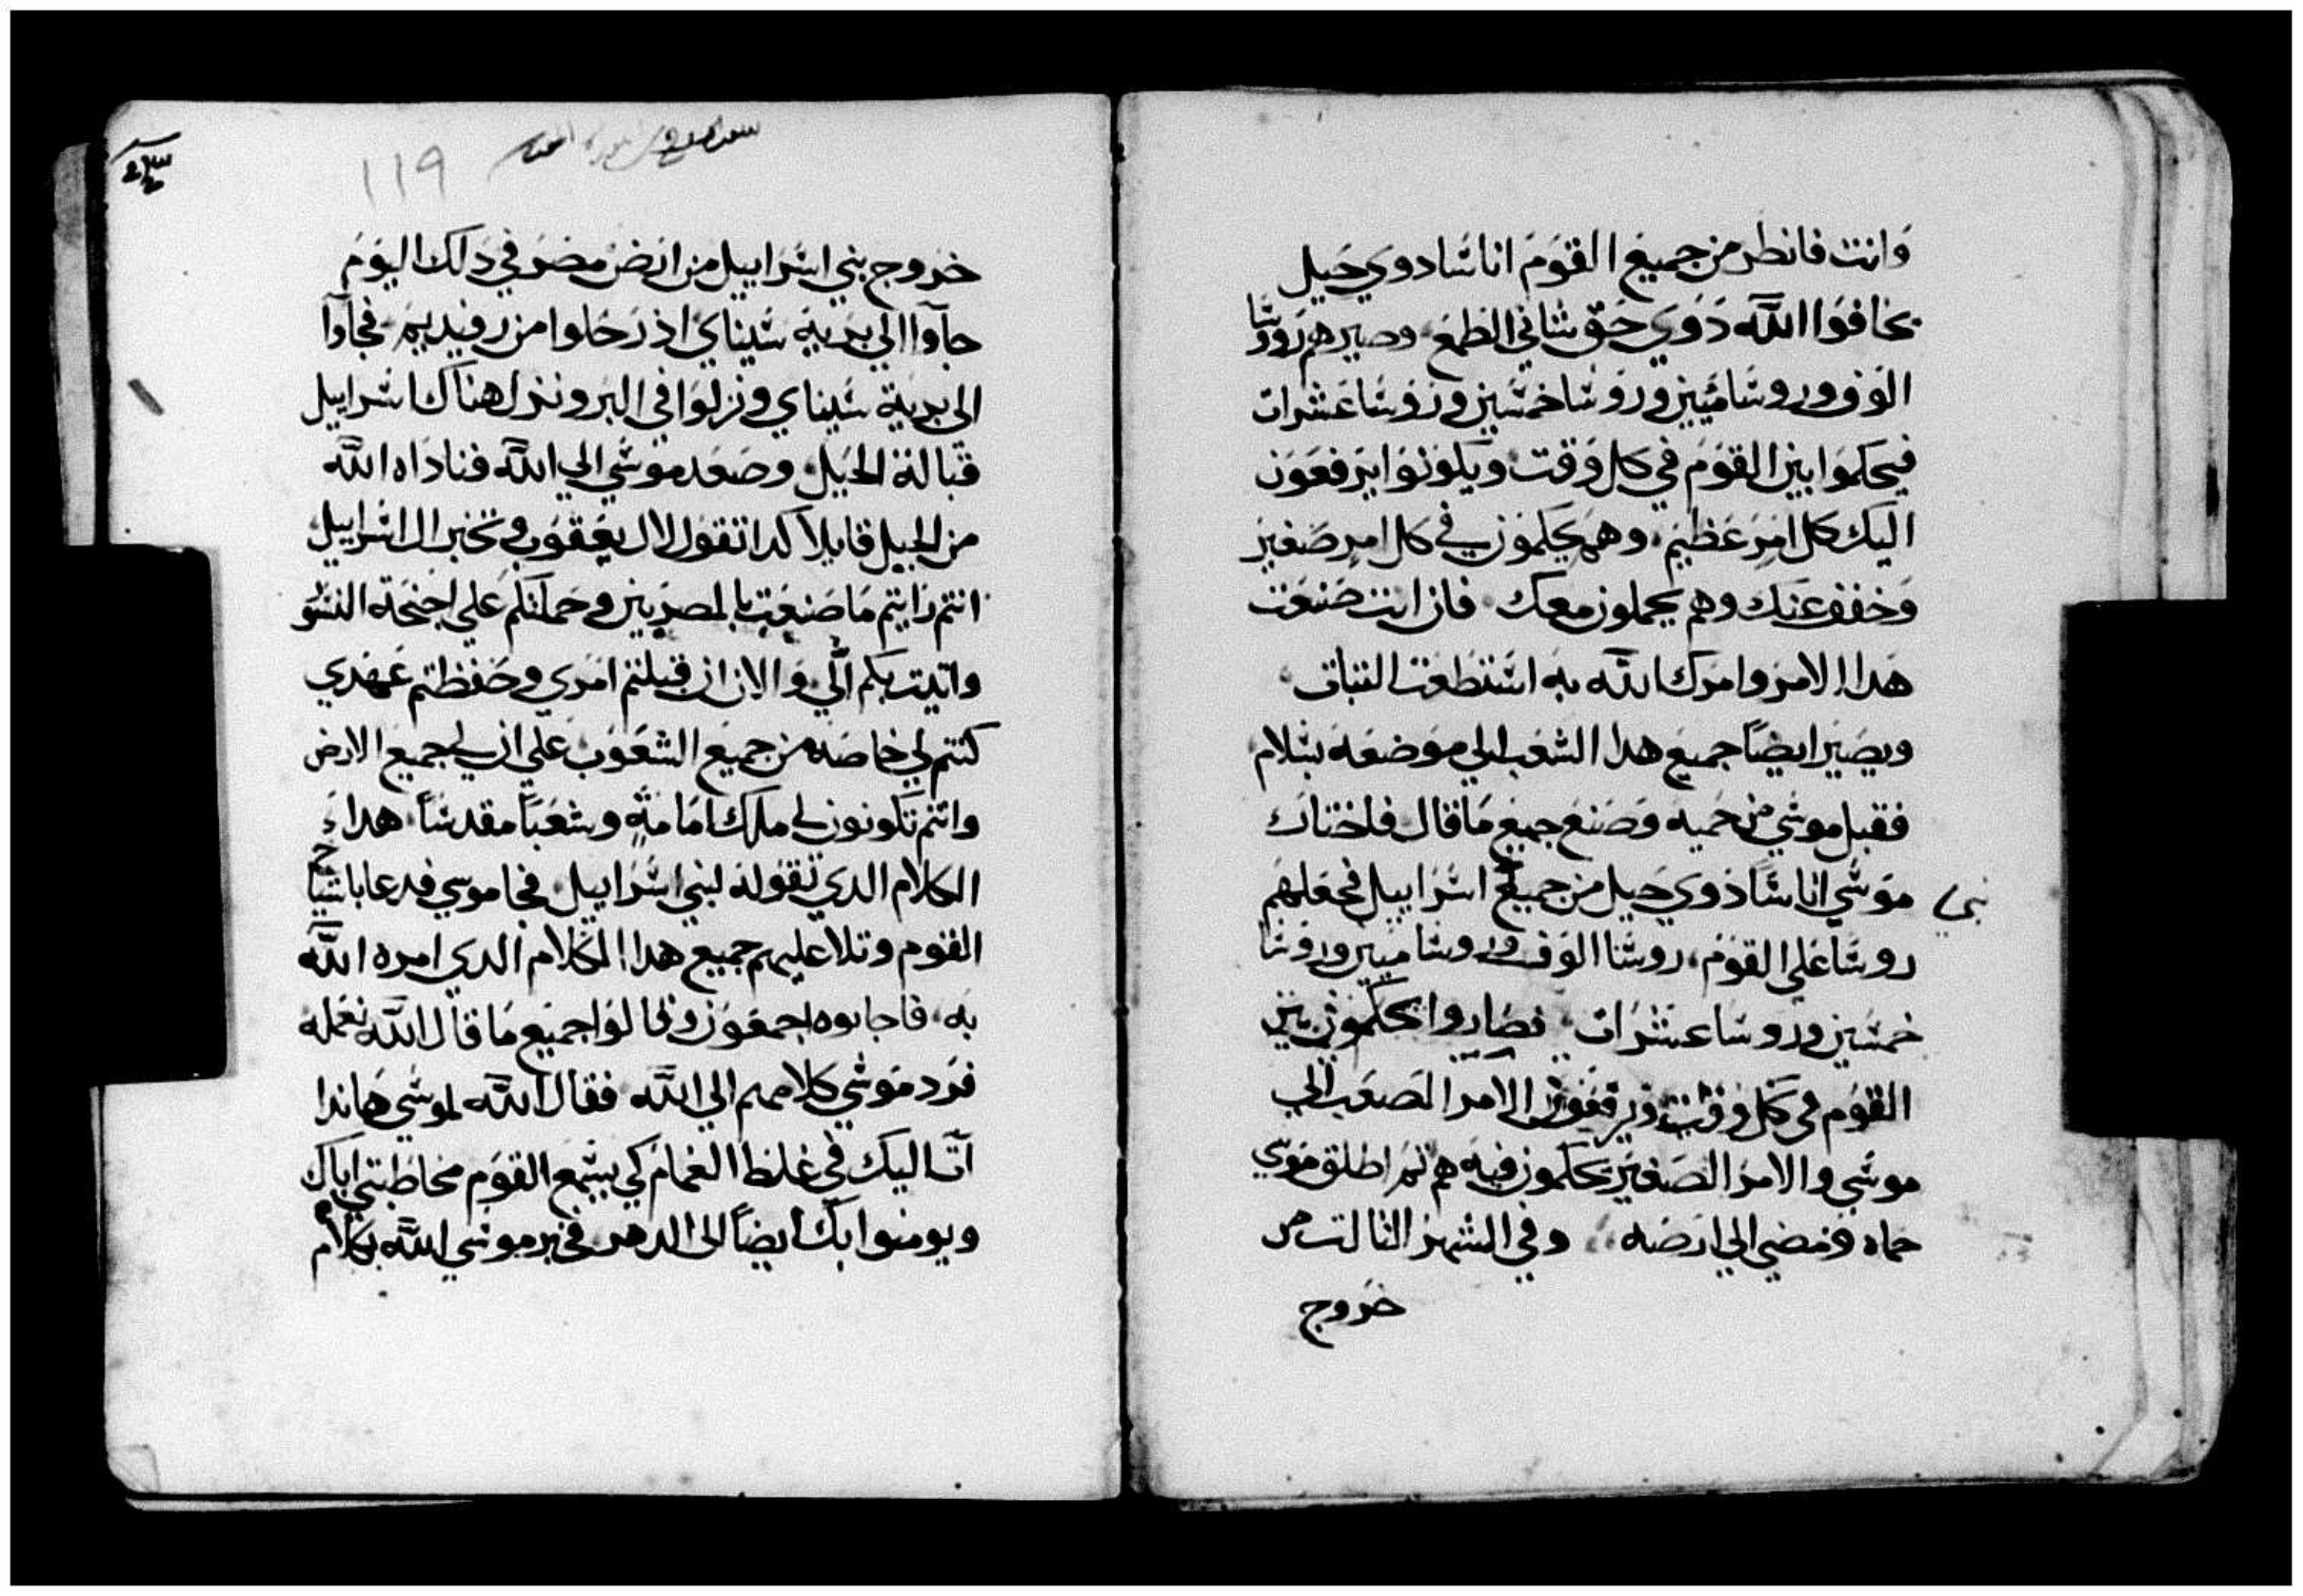 وانت فانطر من جميع القوم اناسا دوي حيل
يخافوا الله ذوي حق شاني الظمع وصيرهم روسا
الوف وروسا ميين وروسا خمسين وروسا عشرات
فيحكموا بين القوم في كل وقت ويكونوا يرفعون
اليك كل امر عظيم وهم يحكمون في كل امر صغير
وخفف عنك وهم يحملون معك فان انت صنعت
هدا الامر وامرك الله به استطعت التبات
ويصير ايضاً جميع هدا الشعب الي موضعه بسلام
فقبل موسي من حميه وصنع جميع ما قال فاختار
موسي اناساً ذوي حيل من جميع اسراييل فجعلهم
بني
روساً علي القوم روسا الوف وروسا ميين وروسا
خمسين وروسا عشرات فصاروا يحكمون بين
القوم في كل وقت ويرفعون الامر الصعب الي
موسي والامر الصغير يحكمون فيه هم ثم اطلق موسي
حماه فمضي الي ارضه وفي الشهر الثالت من
خروج
119
خروج بني اسراييل من ارض مصر في دلك اليوم
جآوا الي برية سيناي اذ رحلوا من رفيديم فجآوا
الي برية سيناي ونزلوا في البر ونزل هناك اسراييل
قبالة الجبل وصعد موسي الي الله فناداه الله
من الجبل قايلا كدا تقول لال يعقوب وتخبر ال اسراييل
انتم رايتم ما صنعت بالمصريين وحملتكم علي اجنحة النسور
واتيت بكم الّي والان ان قبلتم امري وحفظتم عهدي
كنتم لي خاصه من جميع الشعوب علي ان لي جميع الارض
وانتم تكونون لي ملك امامةٍ وشعباً مقدساً هدا
الكلام الدي تقوله لبني اسراييل فجا موسي فدعا باشياخ
القوم وتلا عليهم جميع هدا الكلام الدي امره الله
به فاجابوه اجمعون وقالوا جميع ما قال الله نعمله
فرد موسي كلامهم الي الله فقال الله لموسي هاندا
آت اليك في غلظ الغمام كي يسمع القوم مخاطبتي اياك
ويومنوا بك ايضاً الي الدهر فخبر موسي الله بكلام